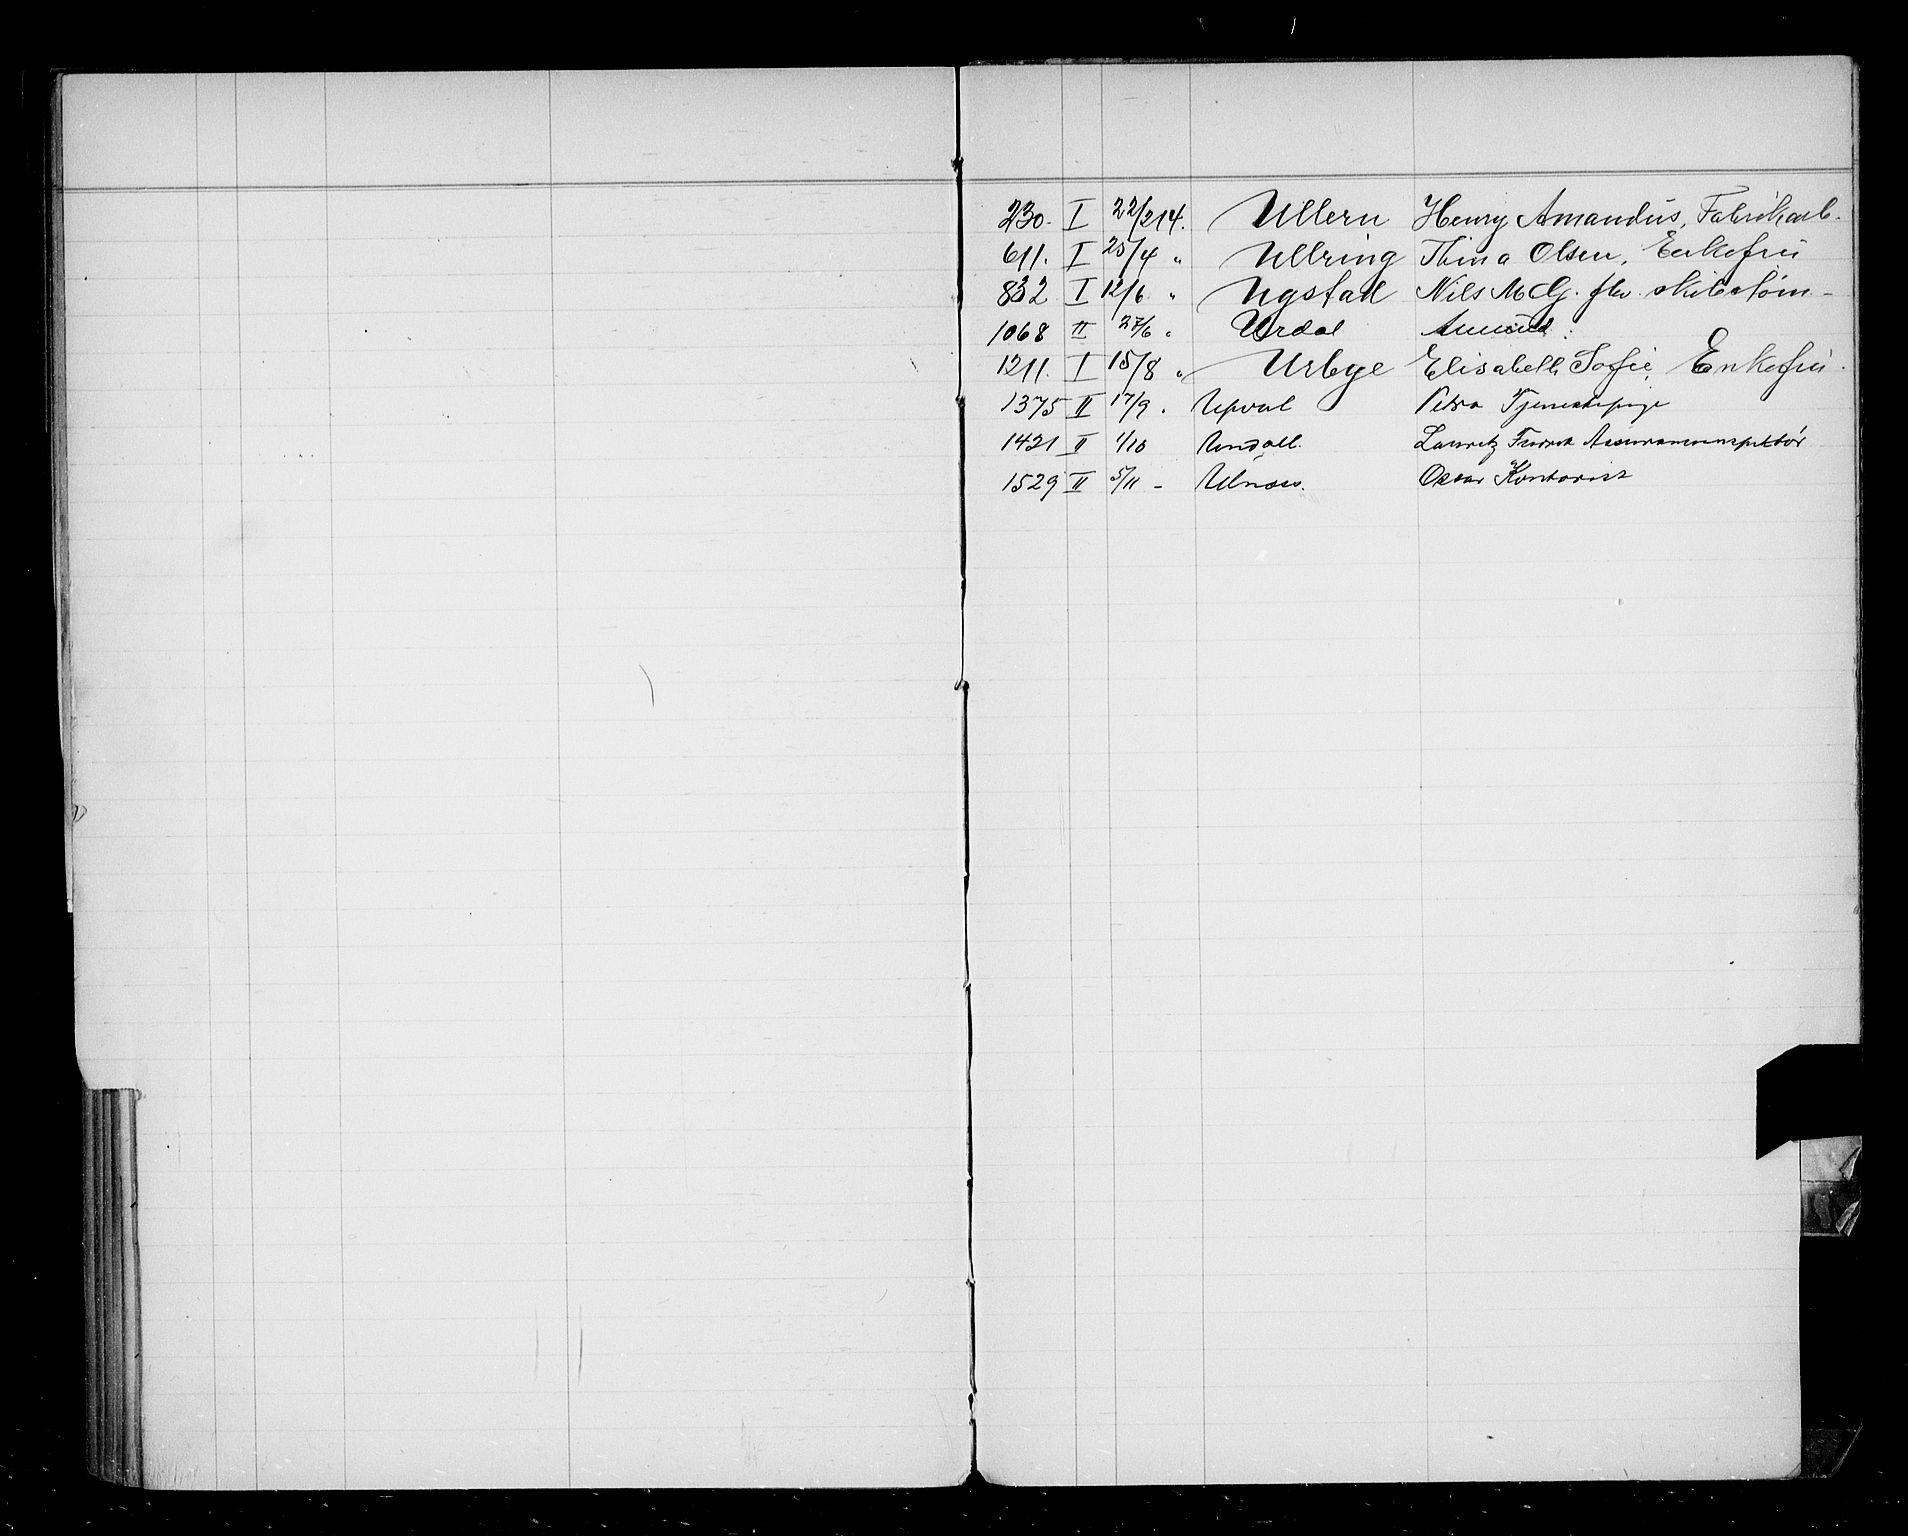 230. I 22/2 14. Ullern Henry Amandus, Fabrikarb.
611. I 25/4 " Ullring Thina Olsen, Enkefru
832 I 12/6 " Ugstad Nils M Chr. fhv. skibstøm-
1068 II 27/6 " Urdal Amund
1211. I 15/8 " Urbye Elisabeth Sofie, Enkefru.
1375 II 17/9 . Upval Petra Tjenestepige
1421 II 1/10 Undall. Lauritz Fredrik Assuranceinspektør
1529 II 5/11 - Ulnæs. Oscar Kontorist